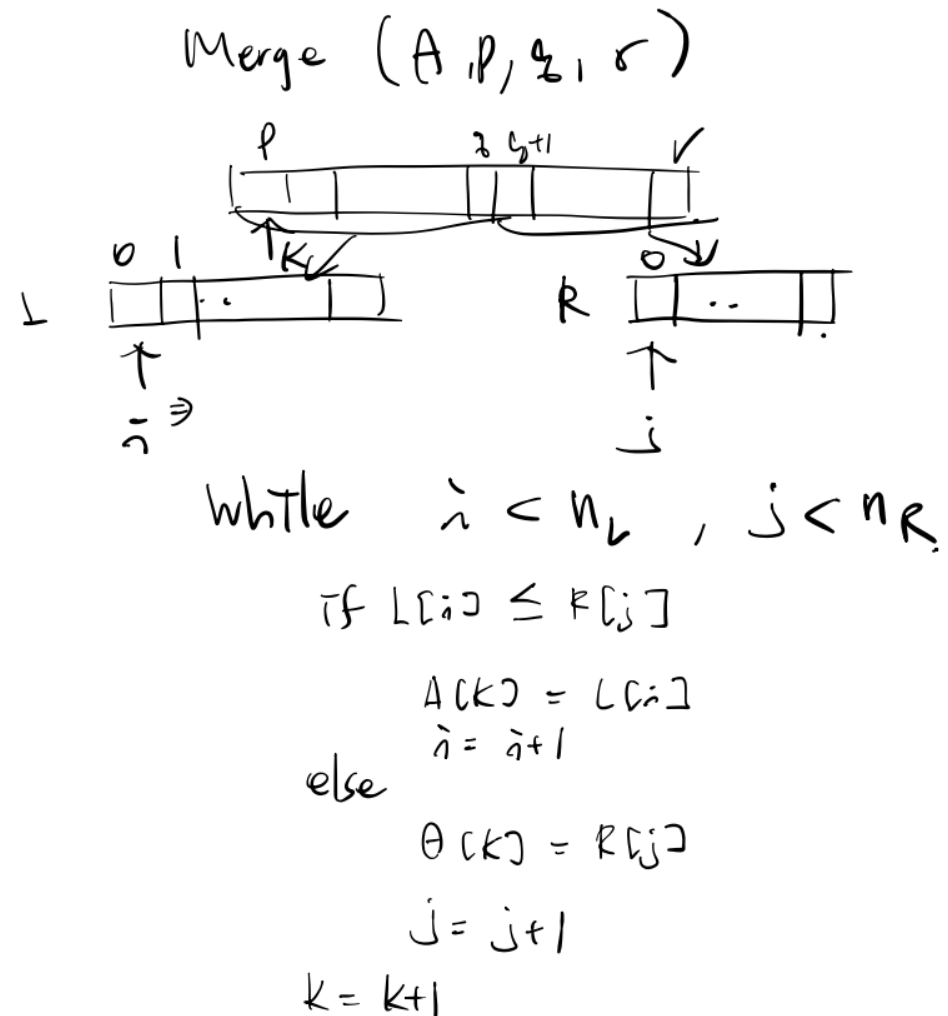 Merge (A, p, q, r)
p q q+1 r
k
0 1 0
L .. R ..
i j
While i < n_L , j < n_R
if L[i] ≤ R[j]
A[k] = L[i]
i = i+1
else
A[k] = R[j]
j = j+1
k = k+1